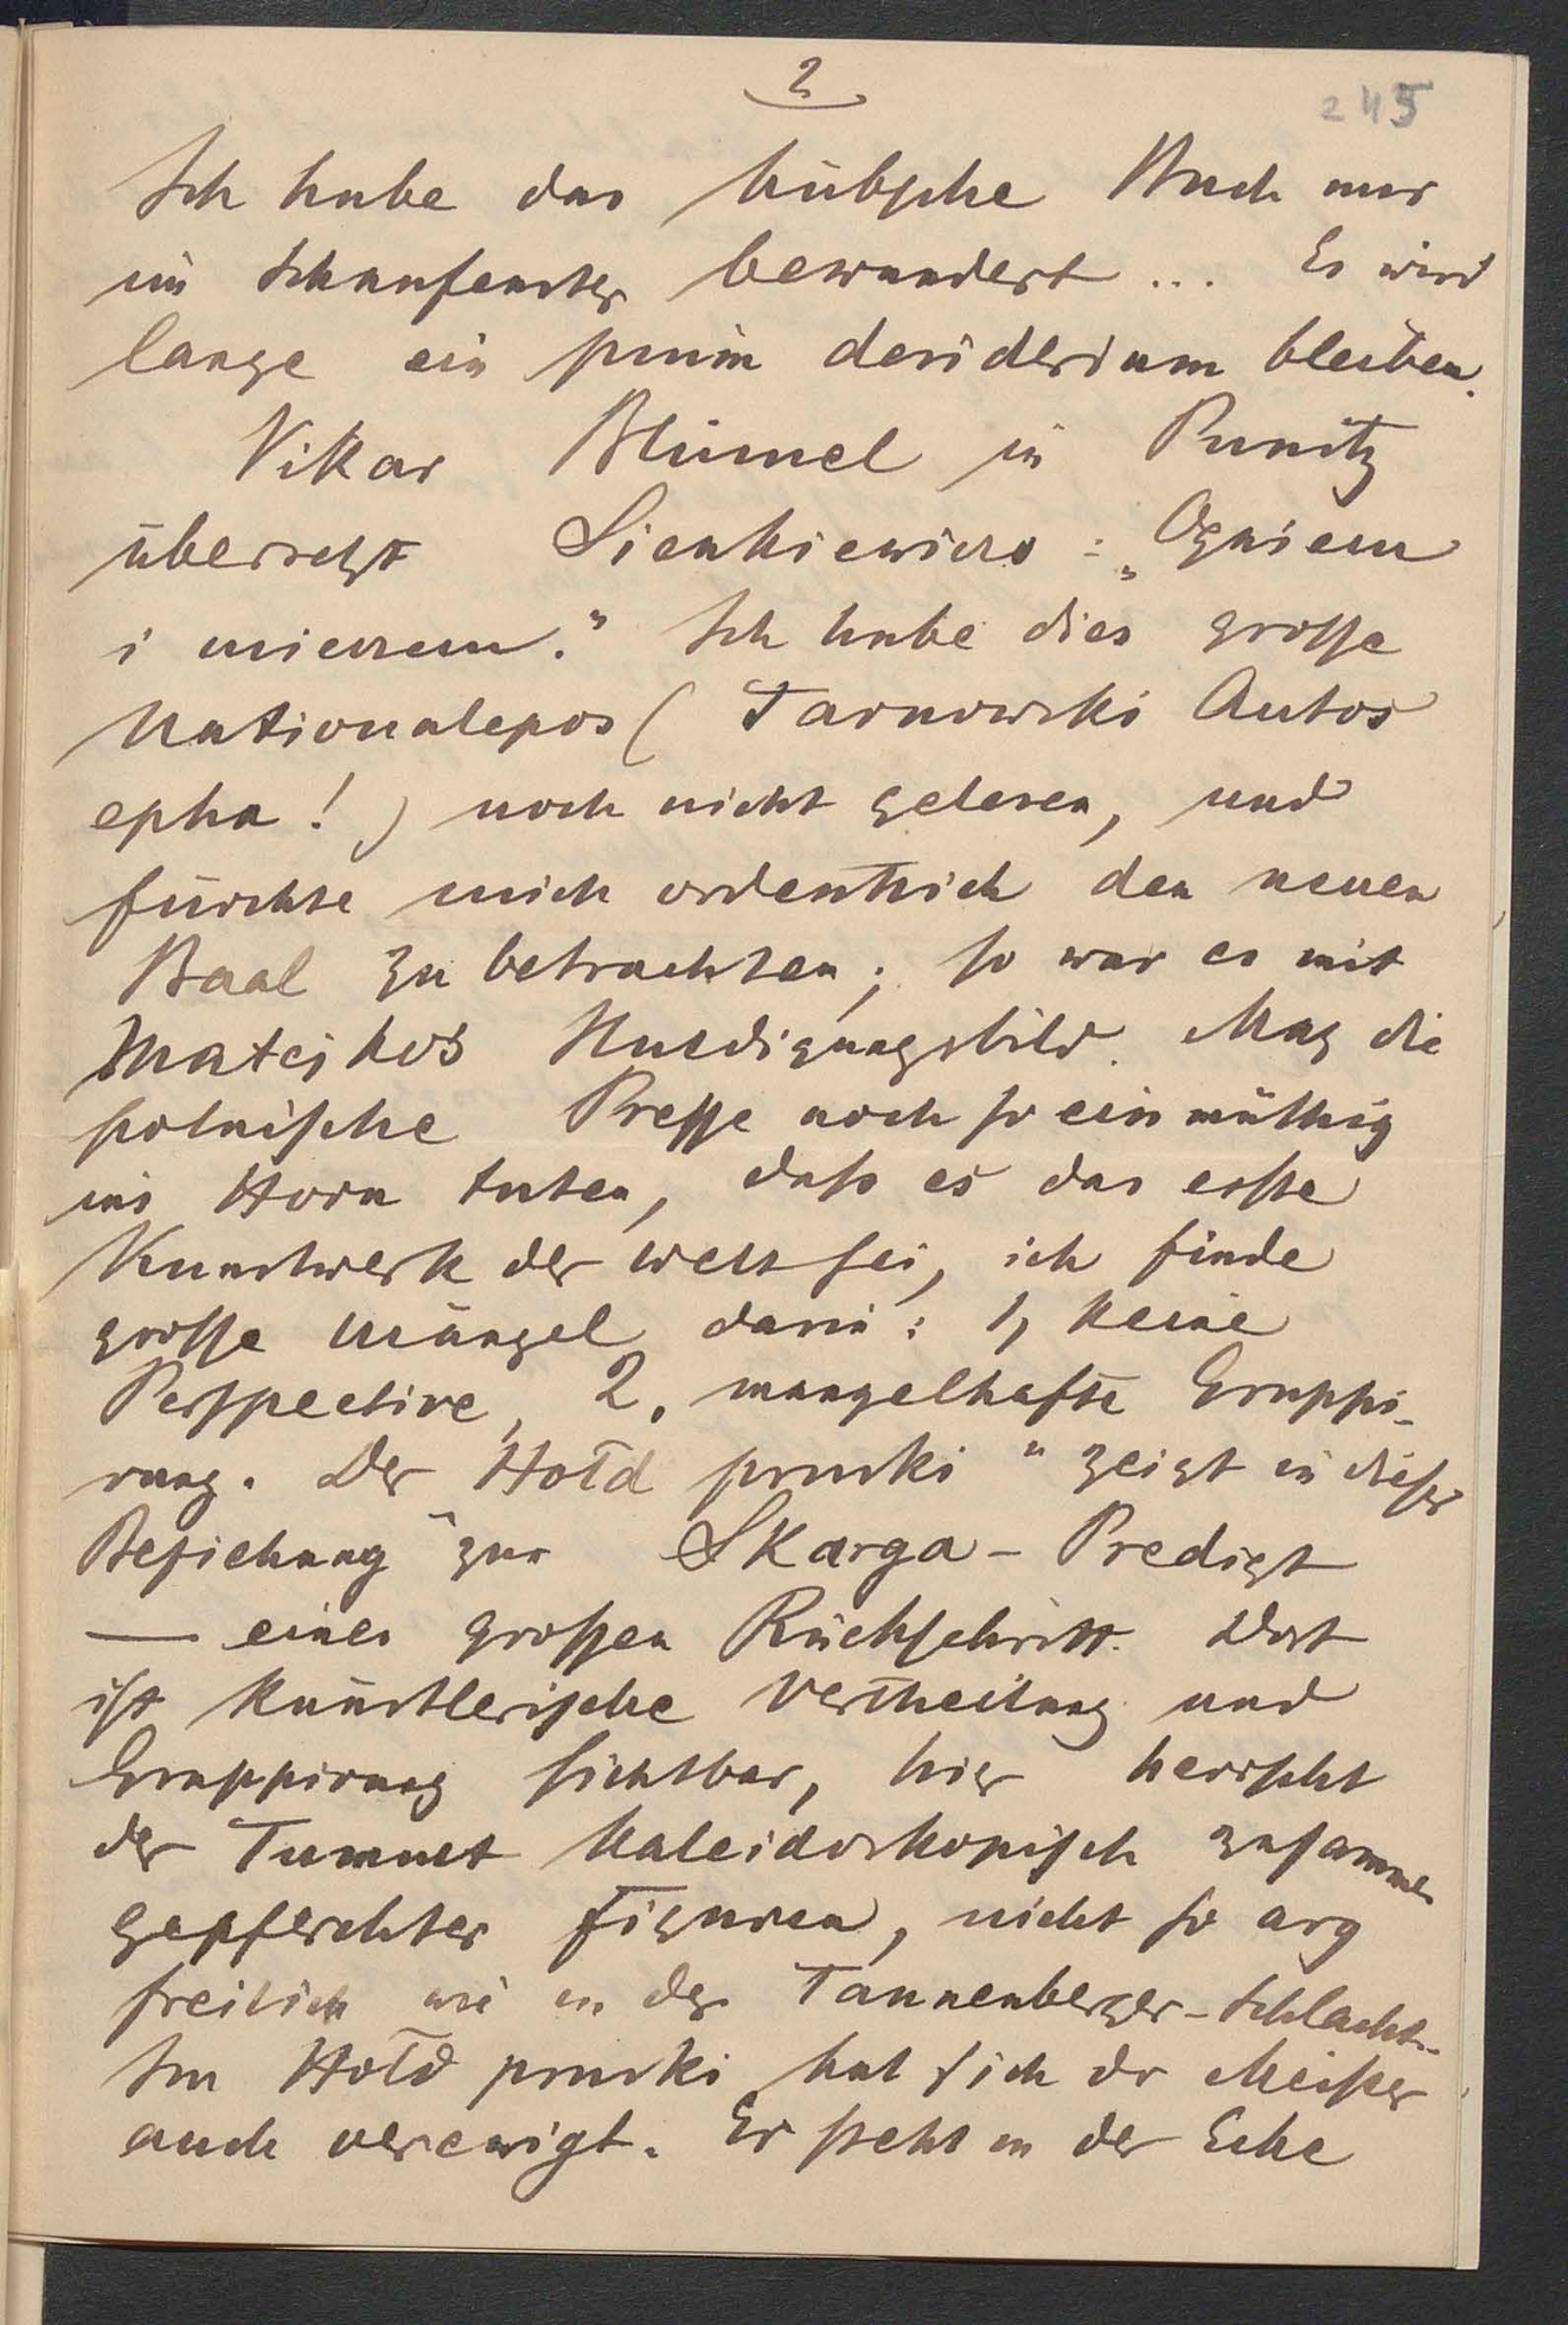 2
245
Ich habe das hübsche Buch nur
im Schaufenster bewundert ... Es wird
lange ein pium desiderium bleiben.
Vikar Blümel in Punitz
übersetzt Sienkiewiczs: „Ogniem
i mieczem." Ich habe dies grosse
Nationalepos (Tarnowski Autos
epha!) noch nicht gelesen, und
fürchte mich ordentlich den neuen
Baal zu betrachten; so war es mit
Matejkos Huldigungsbild. Mag die
polnische Presse noch so einmüthig
ins Horn tuten, dass es das erste
Kunstwerk der Welt sei, ich finde
grosse Mängel darin: 1, keine
Perspective, 2, mangelhafte Gruppi-
rung. Der „Hołd pruski" zeigt in dieser
Beziehung zur Skarga-Predigt
— einen grossen Rückschritt. Dort
ist künstlerische Vertheilung und
Gruppirung sichtbar, hier herrscht
der Tumult kaleidoskopisch zusammen
gepferchter Figuren, nicht so arg
freilich wie in der Tannenberger-Schlacht.
Im Hołd pruski hat sich dr Meister
auch verewigt. Er steht in der Ecke